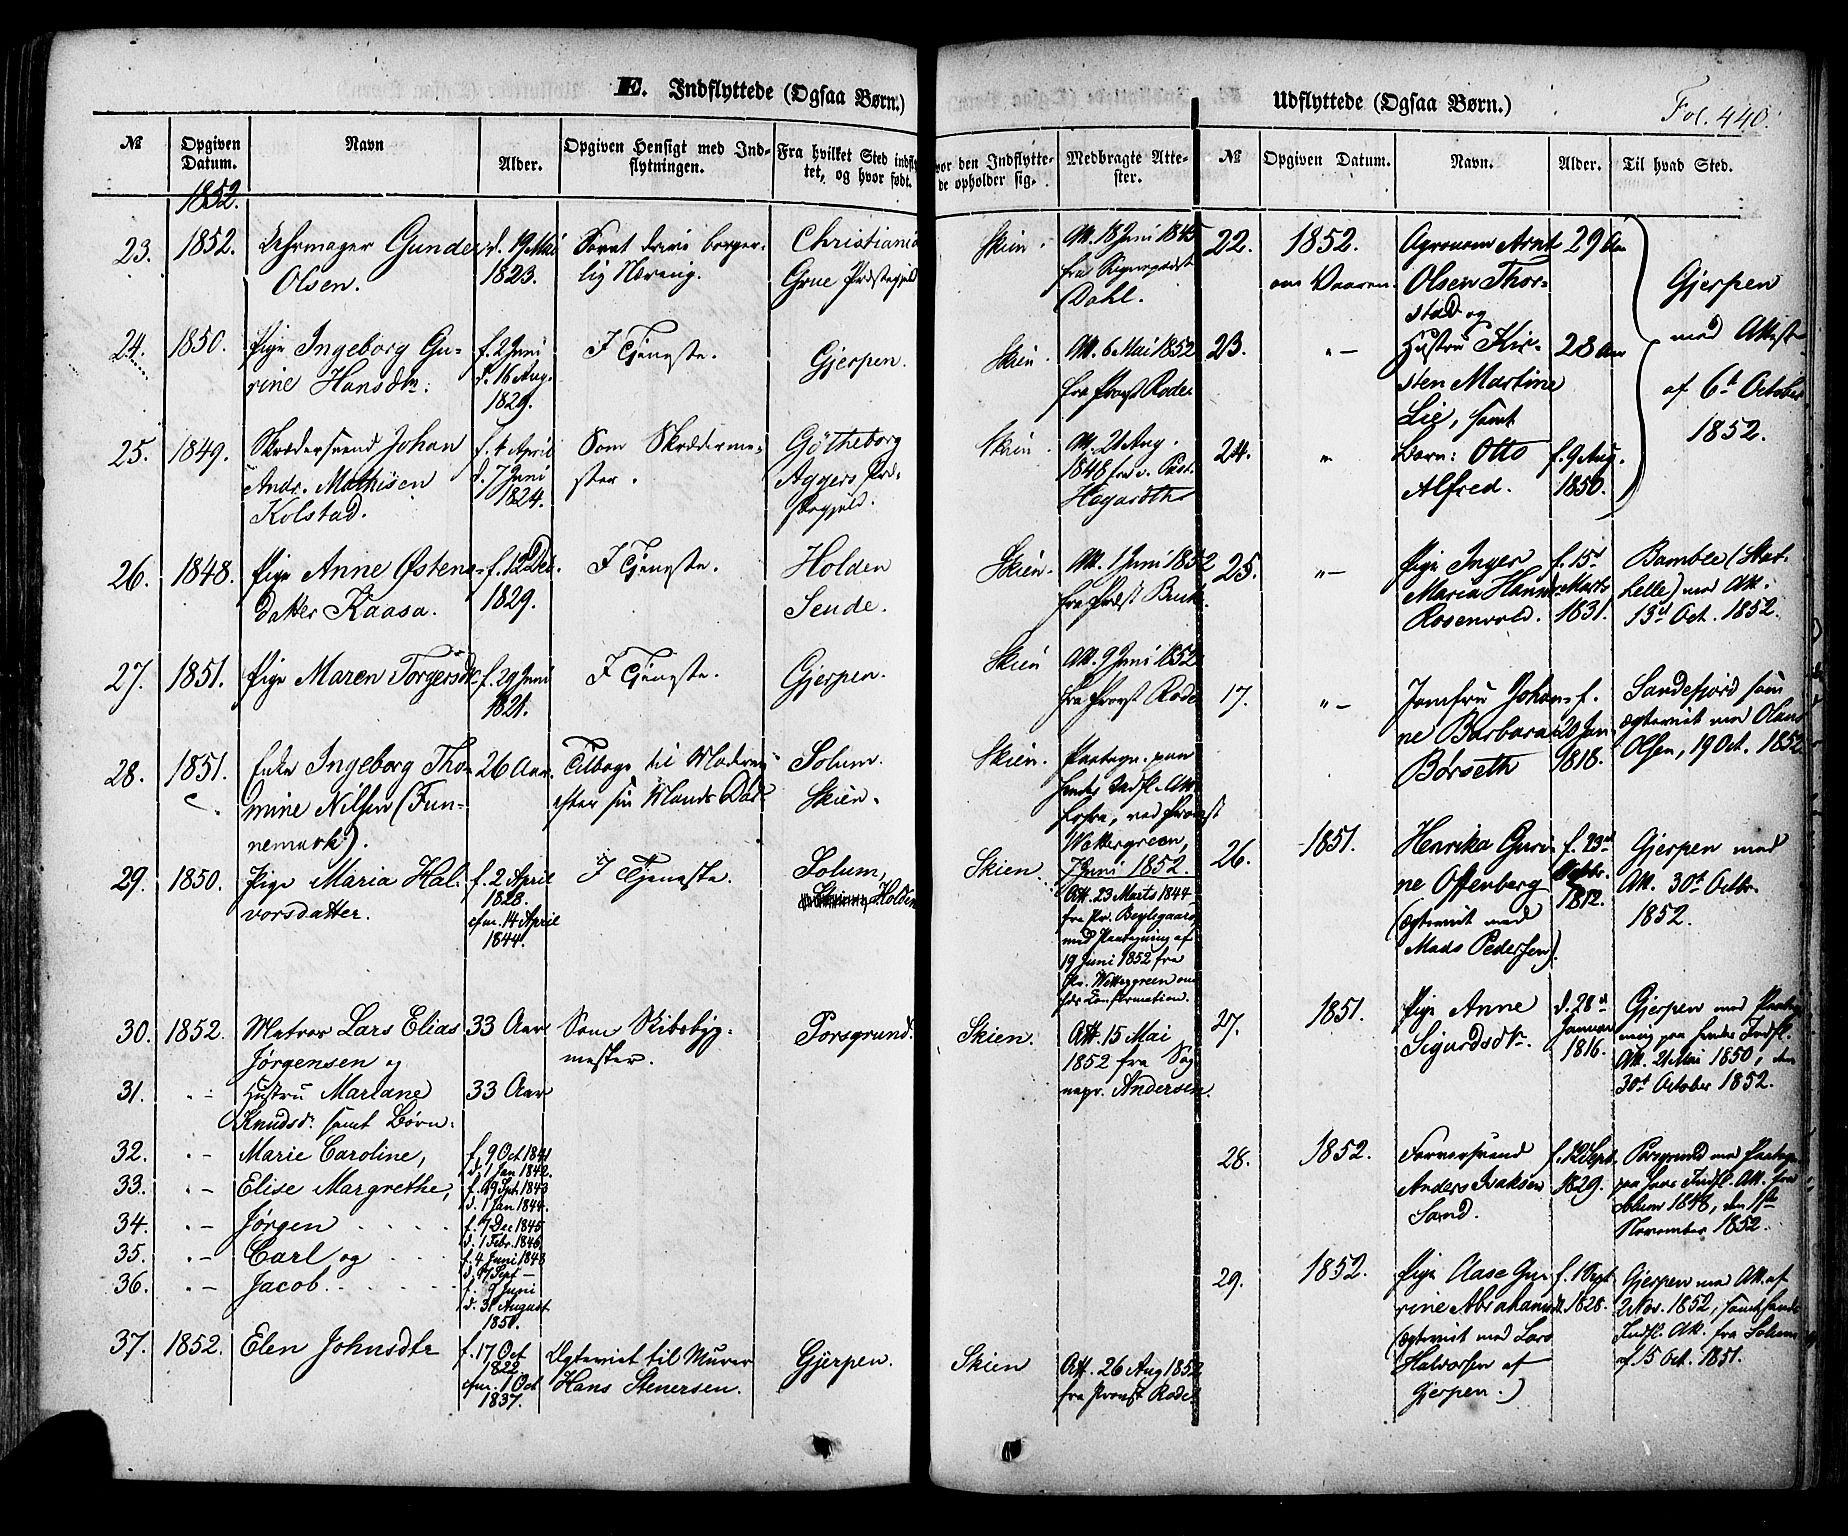 E. Indflyttede (Ogsaa Børn.)
№
Opgiven Datum.
Navn
Alder.
Opgiven Hensigt med Indflytningen.
Fra hvilket Sted indflyttet, og hvor født.
1852.
23. 1852. Gunder Olsen. d. 19 Mai 1823. Christiania
Grue Præstegjeld
24. 1850. Pige Ingeborg Gurine Hansdtr. f. 2 Juni d. 16 Aug. 1829. I Tjeneste. Gjerpen.
25. 1849. Skrædersvend Johan Andr. Mathisen Kolstad. f. 4 April d. 7 Juni 1824. Som Skrædermester. Gøtheborg
Aggers
26. 1848. Pige Anne Østensdatter Kaasa. f. 12 Dec. 1829. I Tjeneste. Holden
27. 1851. Pige Maren Torgersdtr f. 29 Juni 1821. I Tjeneste. Gjerpen.
28. 1851. Enke Ingeborg Thomine Nilsen (Funnemark). 26 Aar. Tilbage til Moderen efter sin Mands Død. Solum.
Skien.
29. 1850. Pige Maria Halvorsdatter. f. 2 April 1828. cfm. 14 April 1844. I Tjeneste. Solum, Holden
30. 1852. Matros Lars Elias Jørgensen og 33 Aar Som Skibsbygmester. Porsgrund.
31. " - Hustru Mariane Knudsd. samt Børn: 33 Aar
32. " - Marie Caroline, f. 9 Oct 1841 d. 1 Jan 1842.
33. " - Elise Margrethe, f. 19 Spt. 1843 d. 1 Jan 1844.
34. " - Jørgen f. 7 Dec 1845 d. 1 Febr. 1846.
35. " - Carl og f. 4 Juni 1848 d. 17 Sept -
36. " - Jacob. f. 9 Juni d. 31 August 1851.
37. 1852. Elen Johnsdtr f. 17 Oct 1822 cfm. 1 Oct 1837. Ægteviet til Murer Hans Stenersen. Gjerpen.
Udflyttede (Ogsaa Børn.)
Fol. 440.
vor den Indflyttede opholder sig.
Medbragte Attester.
№
Opgiven Datum.
Navn.
Alder.
Til hvad Sted.
Skien. Att. 18 Juni 1845 fra Sognepræst Dahl.
Skien. Att. 6 Mai 1852 fra Provst Rode.
Skien. Att. 21 Aug. 1848 Past. Hagardths
Skien. Att. 1 Juni 1852 fra Præst
Skien Att. 9 Juni 1852 fra Provst Rode
Skien. Paategn. paa hendes Indfl. Att. ved Provst Wettergreen, 7 Juni 1852.
Skien. Att. 23 Marts 1844 fra Pr. med Paategning af 19 Juni 1852 fra Pr. Wettergreen om hds Confirmation.
Skien. Att. 15 Mai 1852 fra Sognepr. Andersen.
Skien Att. 26 Aug 1852 fra Provst Rode.
22. 1852. om Vaaren. Agronom Arnt Olsen Thorstad og 29 Aar
23. " - Hustru Kirsten Martine Lie, samt 28 Aar
24. " Barn: Otto Alfred. f. 9 Aug. 1850.
Gjerpen med Attest af 6t October 1852.
25. " - Pige Inger Maria Hansdr Rosenvold. f. 15d Marts 1831. Bamble (Stathelle) med Att. 13d Oct. 1852.
17. " - Jomfru Johanne Barbara Børseth f. 20 Jan 1818. Sandefjord som ægteviet med Olaus Olsen, 19 Oct. 1852
26. 1851. Henrika Gurine Offenberg (ægteviet med Mads Pedersen). f. 23d Octbr. 1812. Gjerpen med Att. 30t Octbr. 1852.
27. 1851. Pige Anne Sigurdsdtr. d. 28d Januar 1816. Gjerpen med Paategning paa hendes Indfl. Att. 21 Mai 1850, den 30t October 1852.
28. 1852. Farversvend Anders Isaksen Sand. f. 12 Sept. 1829. Porsgrund med Paategn. paa hans Indfl. Att. fra Solum 1848, den 1ste November 1852.
29. 1852. Pige Aase Gurine Abrahamsdr (ægteviet med Lars Halvorsen af Gjerpen.) f. 1 Sept 1828. Gjerpen med Att. af 2 Nov. 1852, samt hendes Indfl. Att. fra Solum af 15 Oct. 1851.